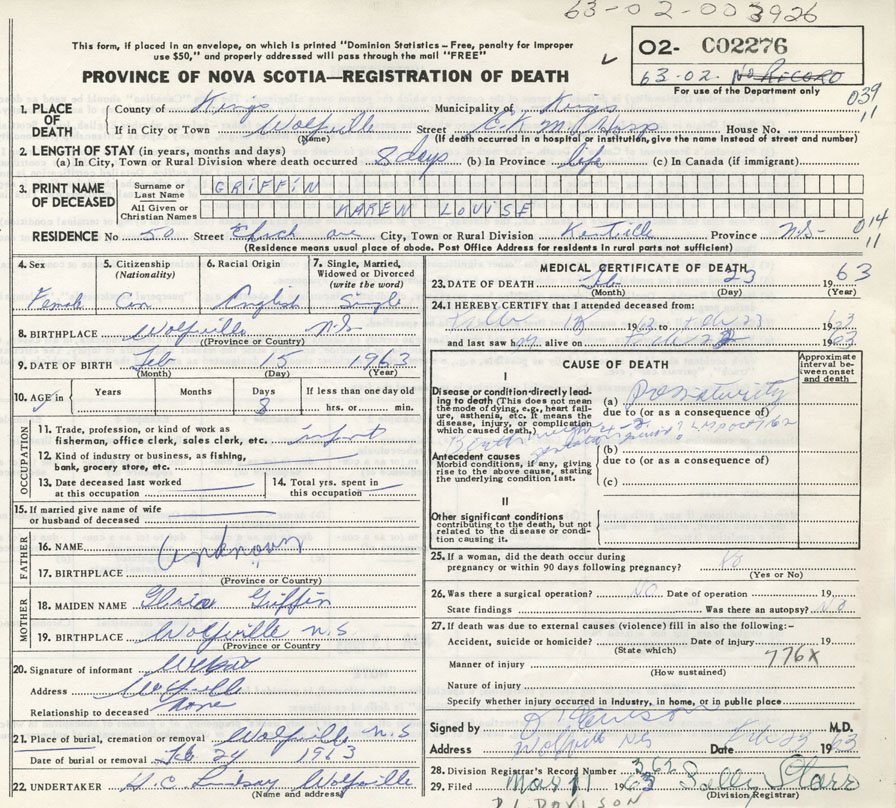 63-02-003926
This form, if placed in an envelope, on which is printed "Dominion Statistics – Free, penalty for improper
use $50," and properly addressed will pass through the mail "FREE"
PROVINCE OF NOVA SCOTIA—REGISTRATION OF DEATH
O2- C02276
63-02. No RECORD
For use of the Department only
039
11
1. PLACE OF DEATH County of Kings Municipality of Kings
If in City or Town Wolfville Street E.K.M. Hosp House No.
(Name) (If death occurred in a hospital or institution, give the name instead of street and number)
2. LENGTH OF STAY (in years, months and days)
(a) In City, Town or Rural Division where death occurred 8 days (b) In Province life (c) In Canada (if immigrant)
3. PRINT NAME OF DECEASED Surname or Last Name GRIFFIN
All Given or Christian Names KAREN LOUISE
RESIDENCE No 50 Street ave City, Town or Rural Division Kentville Province N.S-
014
11
(Residence means usual place of abode. Post Office Address for residents in rural parts not sufficient)
4. Sex 5. Citizenship (Nationality) 6. Racial Origin 7. Single, Married, Widowed or Divorced (write the word)
Female Can English Single
8. BIRTHPLACE Wolfville N.S
(Province or Country)
9. DATE OF BIRTH Feb 15 1963
(Month) (Day) (Year)
10. AGE in Years Months Days 8 If less than one day old hrs. or min.
OCCUPATION
11. Trade, profession, or kind of work as fisherman, office clerk, sales clerk, etc. infant
12. Kind of industry or business, as fishing, bank, grocery store, etc.
13. Date deceased last worked at this occupation
14. Total yrs. spent in this occupation
15. If married give name of wife or husband of deceased
FATHER
16. NAME Unknown
17. BIRTHPLACE
(Province or Country)
MOTHER
18. MAIDEN NAME Griffin
19. BIRTHPLACE Wolfville N.S
(Province or Country)
20. Signature of informant
Address Wolfville
Relationship to deceased None
21. Place of burial, cremation or removal Wolfville N.S
Date of burial or removal Feb 24 1963
22. UNDERTAKER H.C. Lindsay Wolfville
(Name and address)
MEDICAL CERTIFICATE OF DEATH
23. DATE OF DEATH Feb 23 1963
(Month) (Day) (Year)
24. I HEREBY CERTIFY that I attended deceased from:
1963 to Feb 23 1963
and last saw h alive on Feb 23 1963
CAUSE OF DEATH
Approximate interval between onset and death
I
Disease or condition directly leading to death (This does not mean the mode of dying, e.g., heart failure, asthenia, etc. It means the disease, injury, or complication which caused death.)
(a) Prematurity
due to (or as a consequence of)
Birth weight
Antecedent causes
Morbid conditions, if any, giving rise to the above cause, stating the underlying condition last.
(b)
due to (or as a consequence of)
(c)
II
Other significant conditions
contributing to the death, but not related to the disease or condition causing it.
25. If a woman, did the death occur during pregnancy or within 90 days following pregnancy? No
(Yes or No)
26. Was there a surgical operation? NO Date of operation 19
State findings Was there an autopsy? No
27. If death was due to external causes (violence) fill in also the following:-
Accident, suicide or homicide? Date of injury 19
(State which)
Manner of injury 776X
(How sustained)
Nature of injury
Specify whether injury occurred in Industry, in home, or in public place
Signed by M.D.
Address Wolfville NS Date Feb 23 1963
28. Division Registrar's Record Number 362
29. Filed Mar 11 1963 Sally Starr
(Division Registrar)
DAVISON